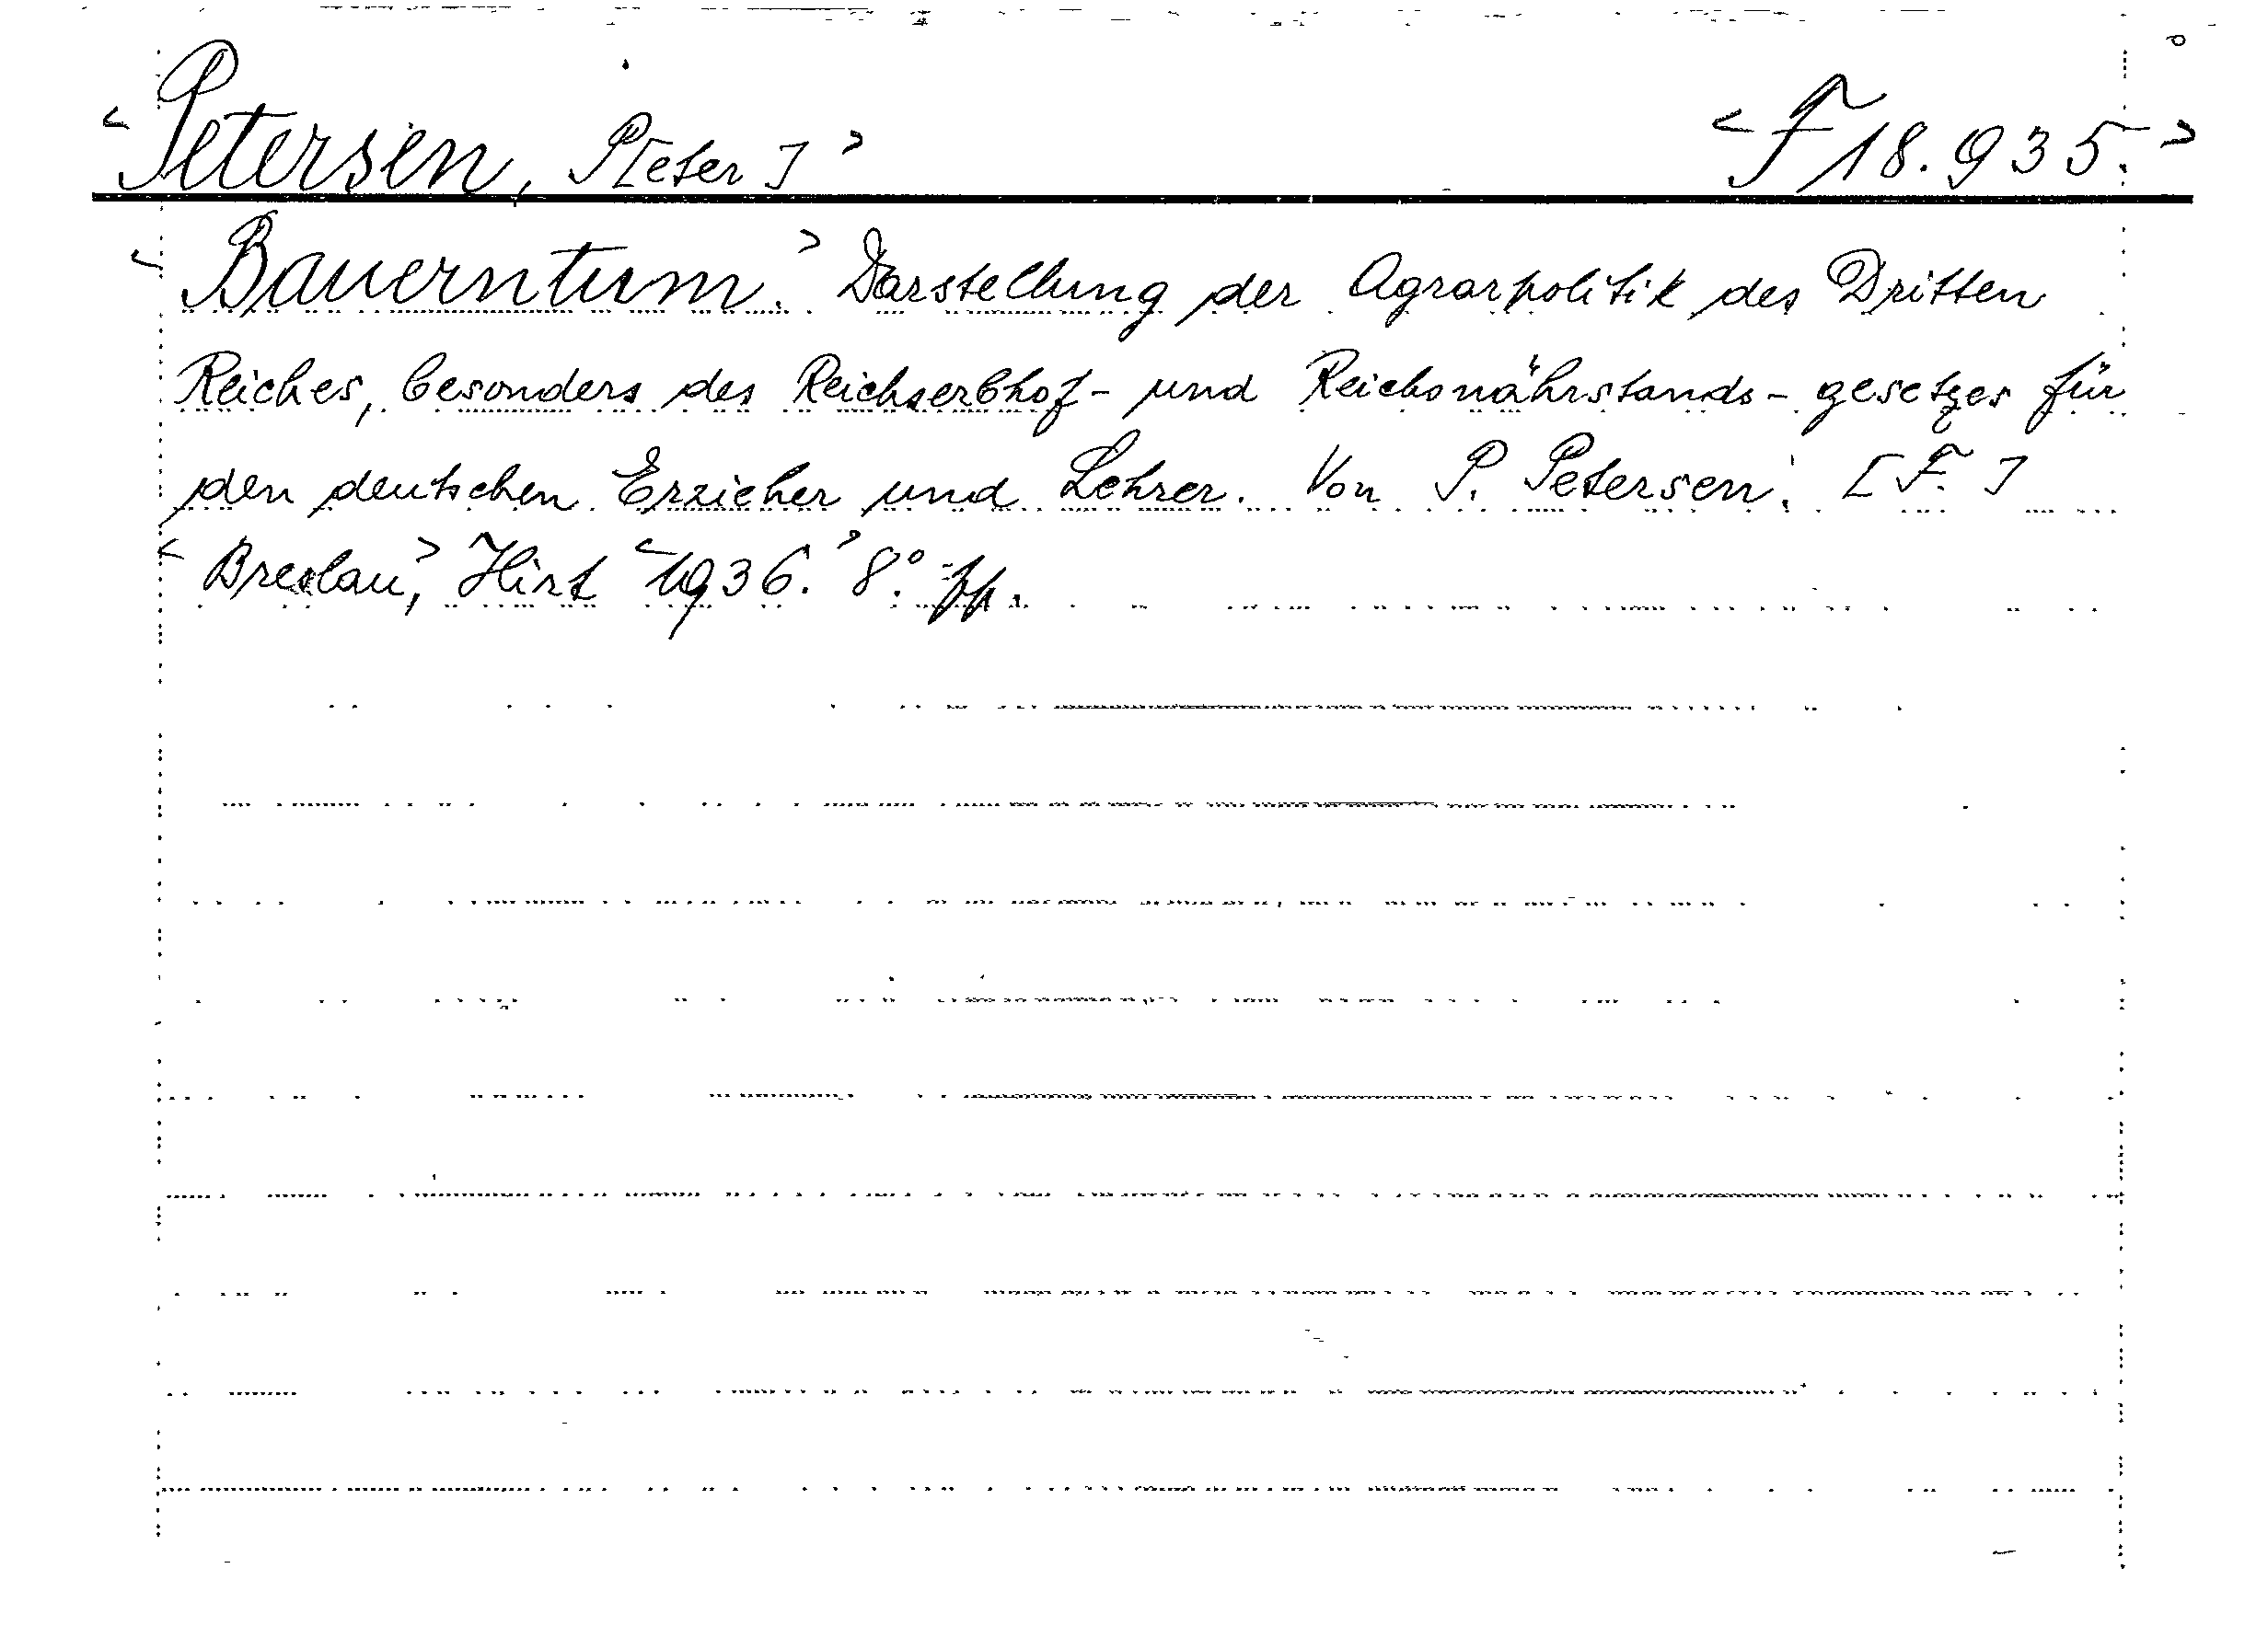 <Petersen, P[eter]> <F 18.935.>
<Bauerntum.> Darstellung der Agrarpolitik des Dritten
Reiches, besonders des Reichserbhof- und Reichsnährstands-gesetzes für
den deutschen Erzieher und Lehrer. Von P. Petersen. [F.]
<Breslau,> Hirt <1936.> 8°.